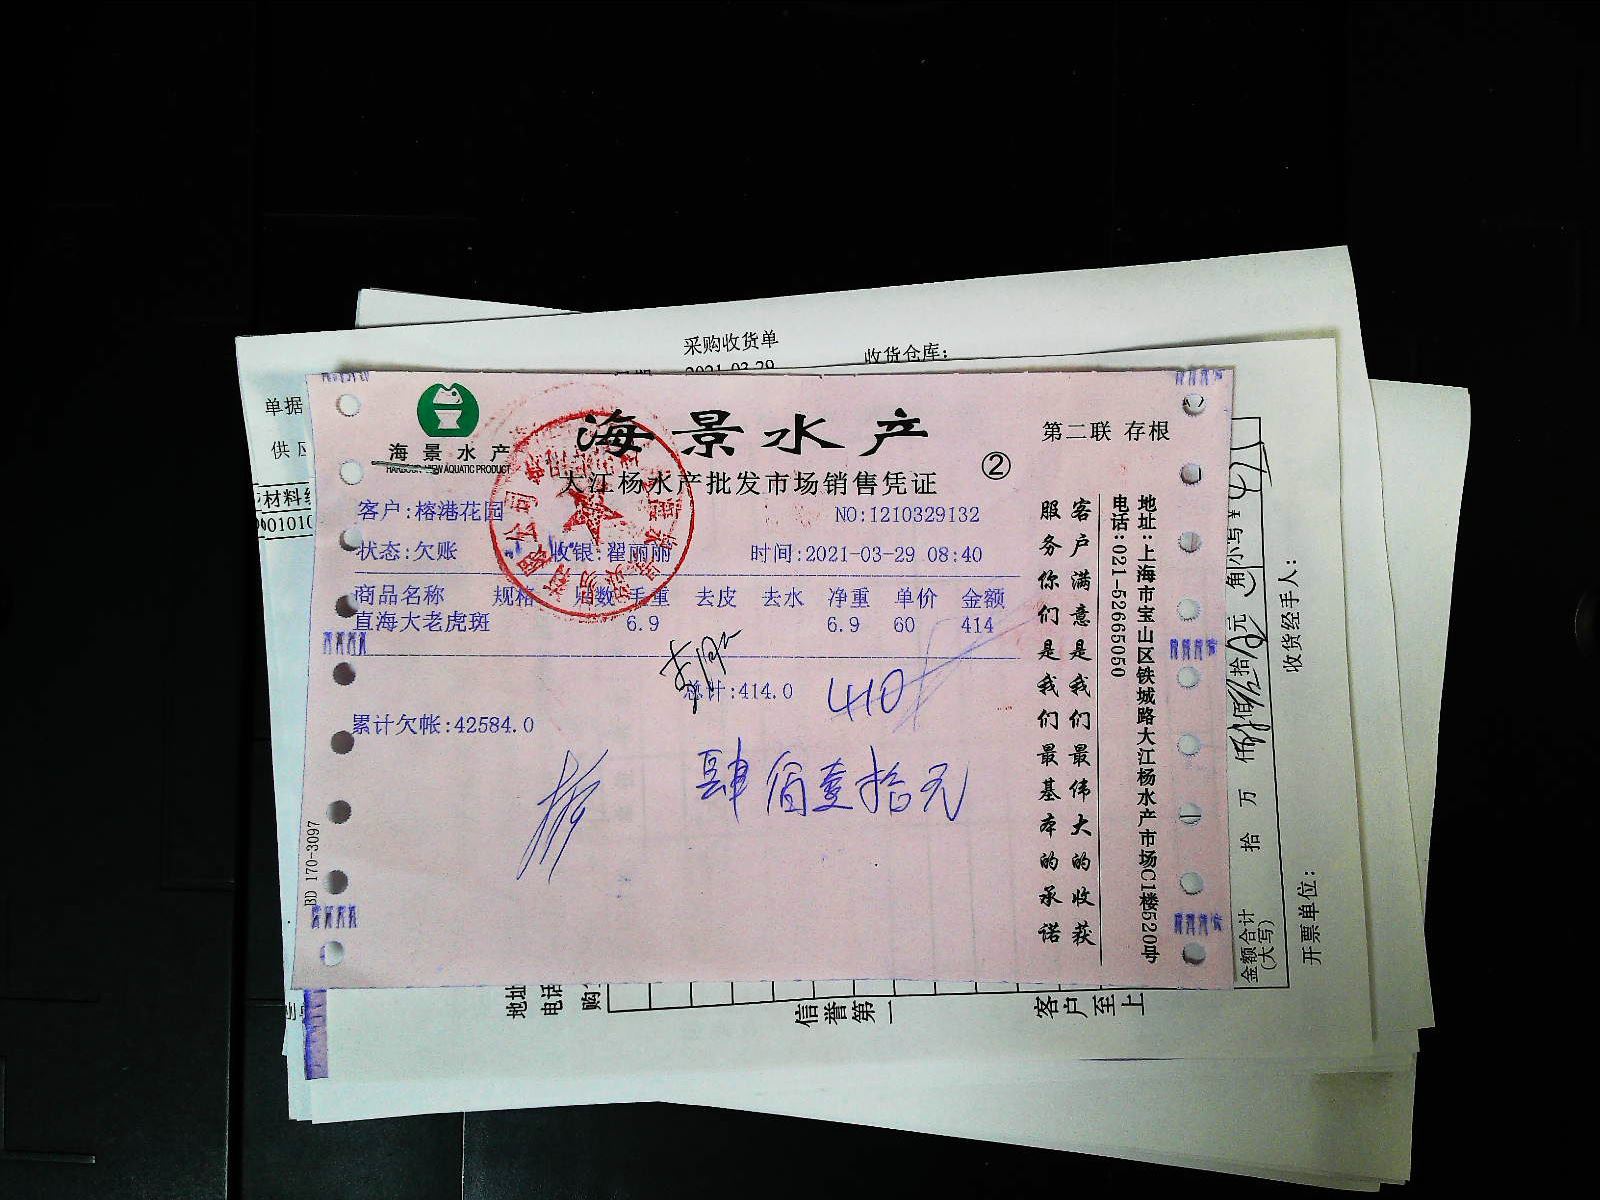 采购收货单
收货仓库:
2021-03-29
单据
供应
材料
001010
海景水产
HARBOUR VIEW AQUATIC PRODUCT
海景水产
第二联 存根
大江杨水产批发市场销售凭证
②
客户:榕港花园
NO:1210329132
状态:欠账
收银:翟丽丽
时间:2021-03-29 08:40
商品名称 规格 归数 毛重 去皮 去水 净重 单价 金额
直海大老虎斑 6.9 6.9 60 414
总计:414.0
410
累计欠帐:42584.0
肆佰壹拾元
客户满意是我们最伟大的收获
服务你们是我们最基本的承诺
地址:上海市宝山区铁城路大江杨水产市场C1楼520号
电话:021-52665050
BD 170-3097
金额合计
(大写)
拾 万 仟 佰 拾 元 角
小写¥
收货经手人:
开票单位:
地址
电话
购
信誉第一
客户至上